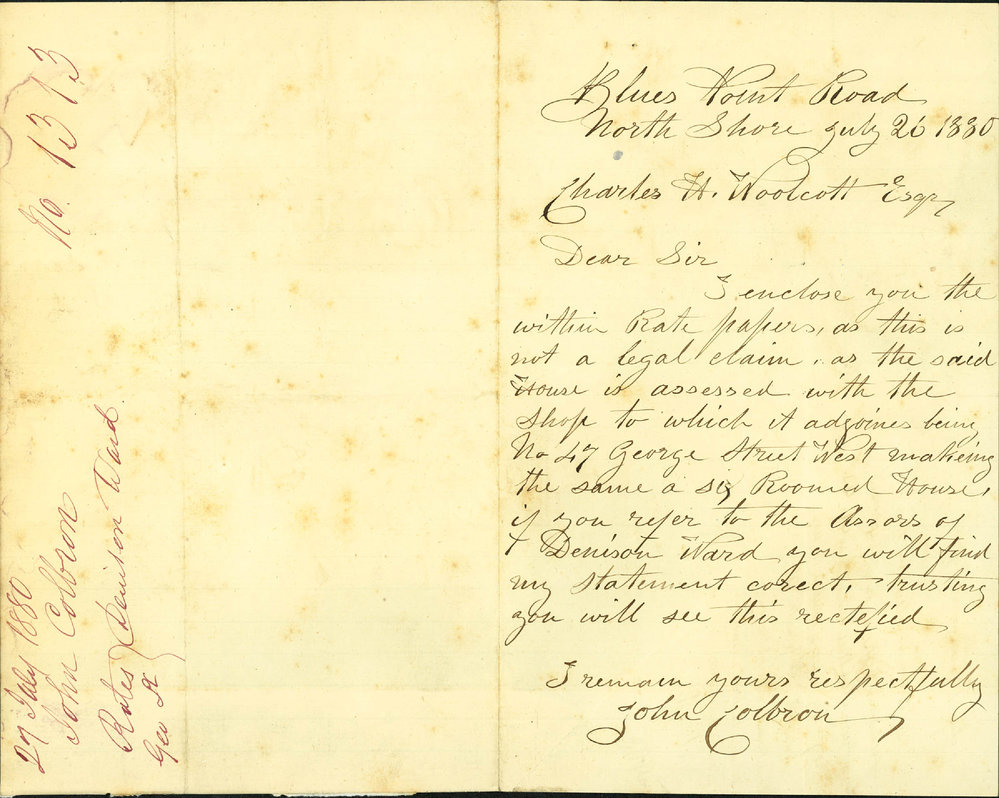 No. 1373
27 July 1880
John Colbron
Rates Denison Ward
Geo St
Blues Point Road
North Shore July 26 1880
Charles H. Woolcott Esqr
Dear Sir
I enclose you the
within Rate papers, as this is
not a legal claim, as the said
House is assessed with the
Shop to which it adjoines being
No 47 George Street West makeing
the same a six Roomed House,
if you refer to the Assors of
Denison Ward you will find
my statement corect, trusting
you will see this rectefied
I remain yours respectfully
John Colbron